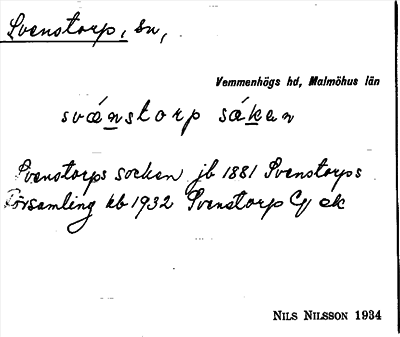 Svenstorp, sn,
Vemmenhögs hd, Malmöhus län
svǽnstorp sákan
Svenstorps socken jb 1881 Svenstorps
Församling kb 1932 Svenstorp Cg ek
NILS NILSSON 1934